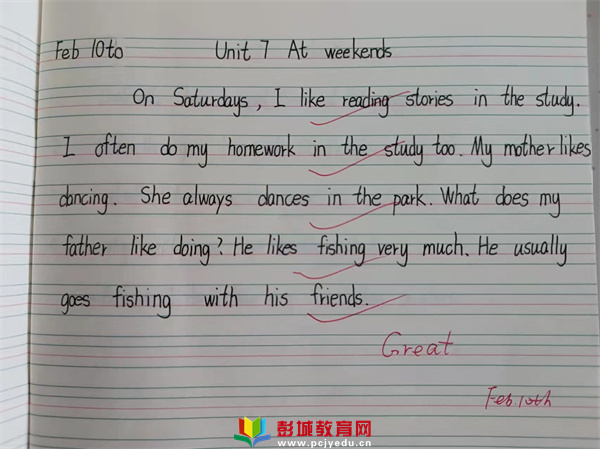 Feb 10to Unit 7 At weekends
On Saturdays, I like reading stories in the study.
I often do my homework in the study too. My mother likes
dancing. She always dances in the park. What does my
father like doing? He likes fishing very much. He usually
goes fishing with his friends.
Great
Feb.10th
彭城教育网
www.pcjyedu.cn